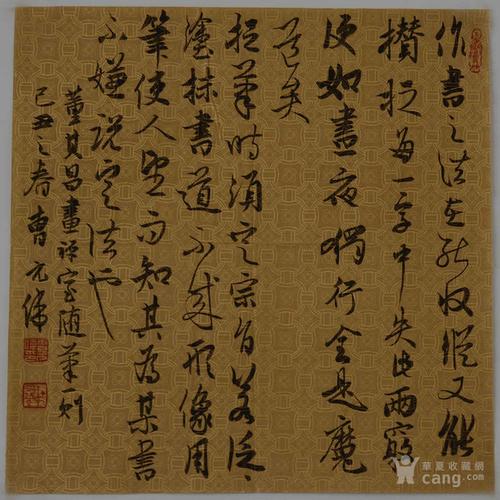 作書之法在能放縱又能
攢捉每一字中失此兩竅
便如晝夜獨行全是魔
道矣
捉筆時須定宗旨若泛泛
塗抹書道不成形像用
筆使人望而知其為某書
不嫌說定法也
董其昌畫禪室隨筆則
己丑之春曹元偉
华夏收藏网
cang.com